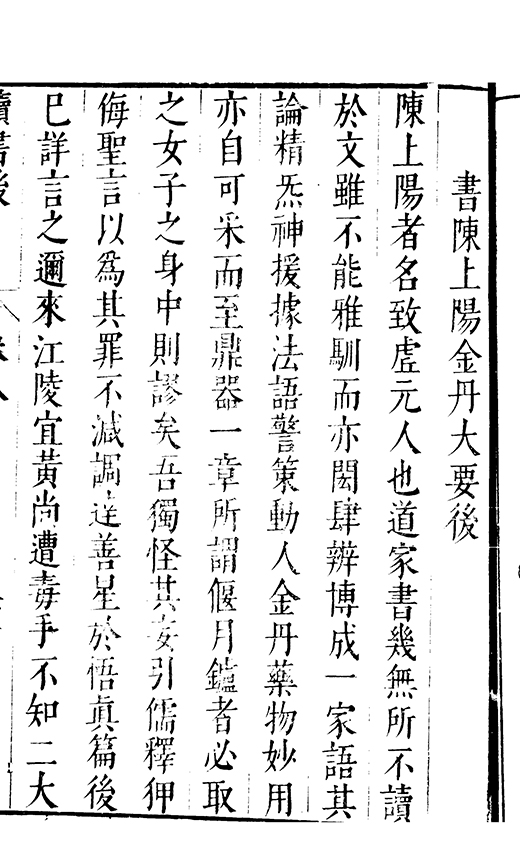 書陳上陽金丹大要後
陳上陽者名致虛元人也道家書幾無所不讀
於文雖不能雅馴而亦閎肆辨博成一家語其
論精炁神援據法語警策動人金丹藥物妙用
亦自可采而至鼎器一章所謂偃月鑪者必取
之女子之身中則謬矣吾獨怪其妄引儒釋狎
侮聖言以為其罪不減調達善星於悟真篇後
已詳言之邇來江陵宜黃尚遭毒手不知二大
讀書後